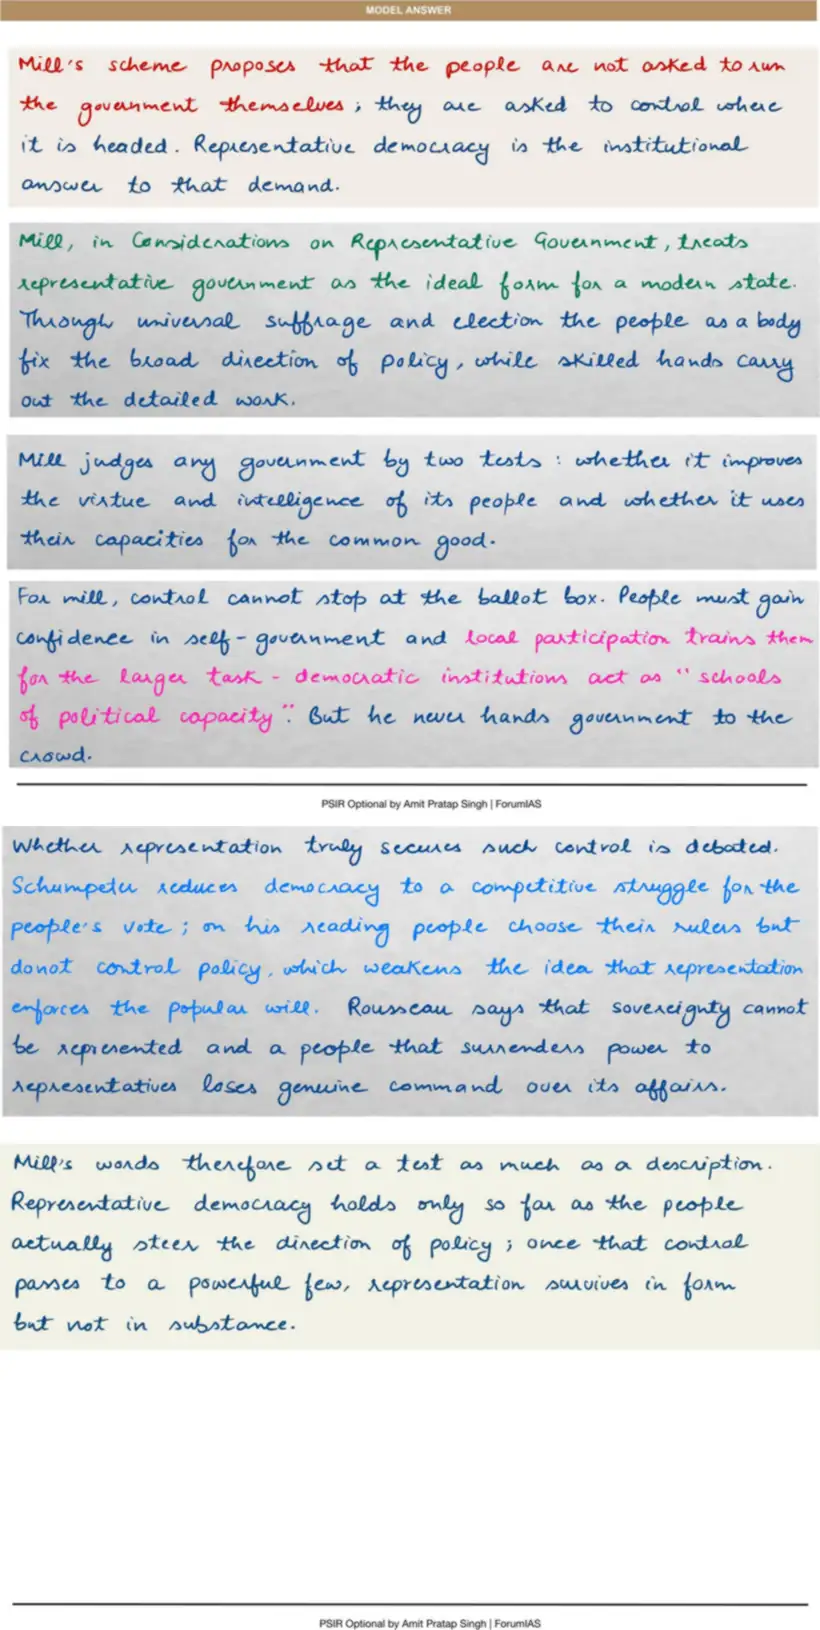 MODEL ANSWER
Mill's scheme proposes that the people are not asked to run
the government themselves ; they are asked to control where
it is headed. Representative democracy is the institutional
answer to that demand.
Mill, in Considerations on Representative Government, treats
representative government as the ideal form for a modern state.
Through universal suffrage and election the people as a body
fix the broad direction of policy, while skilled hands carry
out the detailed work.
Mill judges any government by two tests : whether it improves
the virtue and intelligence of its people and whether it uses
their capacities for the common good.
For mill, control cannot stop at the ballot box. People must gain
confidence in self-government and local participation trains them
for the larger task - democratic institutions act as "schools
of political capacity". But he never hands government to the
crowd.
PSIR Optional by Amit Pratap Singh | ForumIAS
Whether representation truly secures such control is debated.
Schumpeter reduces democracy to a competitive struggle for the
people's vote ; on his reading people choose their rulers but
donot control policy, which weakens the idea that representation
enforces the popular will. Rousseau says that sovereignty cannot
be represented and a people that surrenders power to
representatives loses genuine command over its affairs.
Mill's words therefore set a test as much as a description.
Representative democracy holds only so far as the people
actually steer the direction of policy ; once that control
passes to a powerful few, representation survives in form
but not in substance.
PSIR Optional by Amit Pratap Singh | ForumIAS